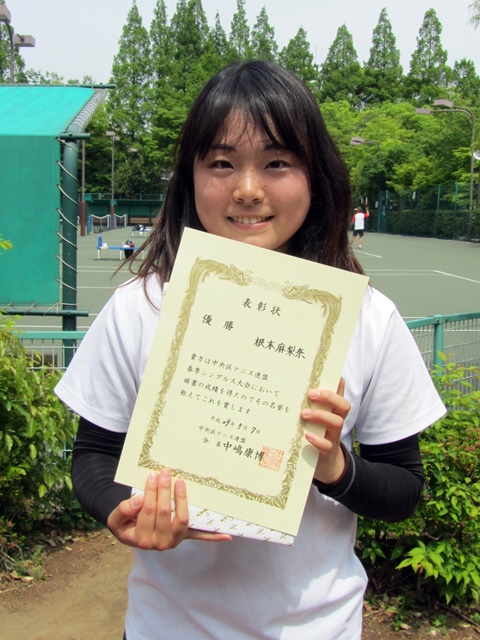 表彰状
優勝
根本麻梨奈
貴方は中央区テニス連盟
春季シングルス大会において
頭書の成績を得たのでその名誉を
称えてこれを賞します
平成29年5月7日
中央区テニス連盟
会長 中嶋康博